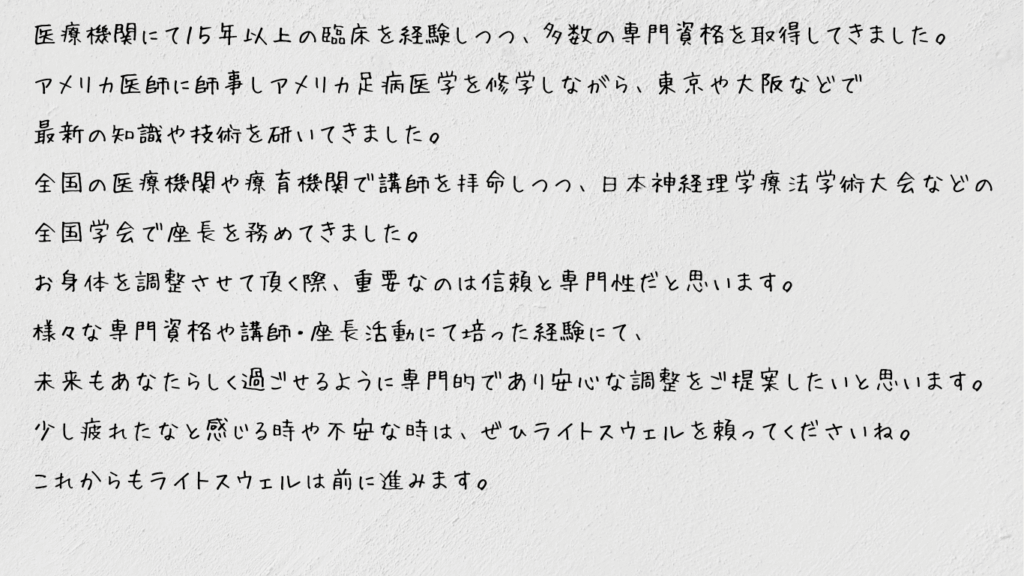 医療機関にて15年以上の臨床を経験しつつ、多数の専門資格を取得してきました。
アメリカ医師に師事しアメリカ足病医学を修学しながら、東京や大阪などで
最新の知識や技術を研いてきました。
全国の医療機関や療育機関で講師を拝命しつつ、日本神経理学療法学術大会などの
全国学会で座長を務めてきました。
お身体を調整させて頂く際、重要なのは信頼と専門性だと思います。
様々な専門資格や講師・座長活動にて培った経験にて、
未来もあなたらしく過ごせるように専門的であり安心な調整をご提案したいと思います。
少し疲れたなと感じる時や不安な時は、ぜひライトスウェルを頼ってくださいね。
これからもライトスウェルは前に進みます。